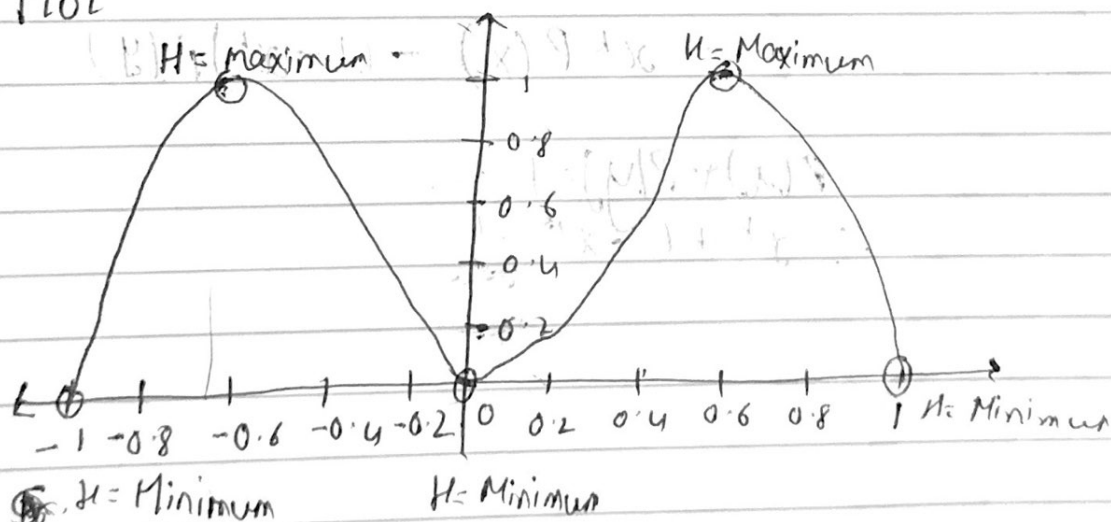 Plot
H = Maximum
H = Maximum
1
0.8
0.6
0.4
0.2
-1 -0.8 -0.6 -0.4 -0.2 0 0.2 0.4 0.6 0.8 1 H = Minimum
H = Minimum
H = Minimum